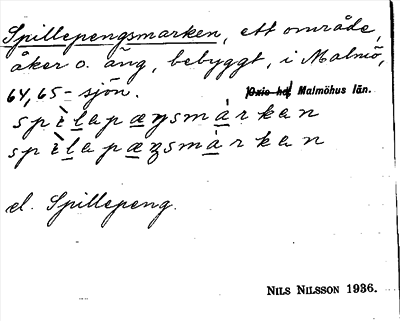 Spillepengsmarken, ett område,
åker o. äng, bebyggt, i Malmö,
64,65 - sjön. Oxie hd Malmöhus län.
spìlapæŋsmàrkan
spìlapæŋsmàrkan
el. Spillepeng.
NILS NILSSON 1936.